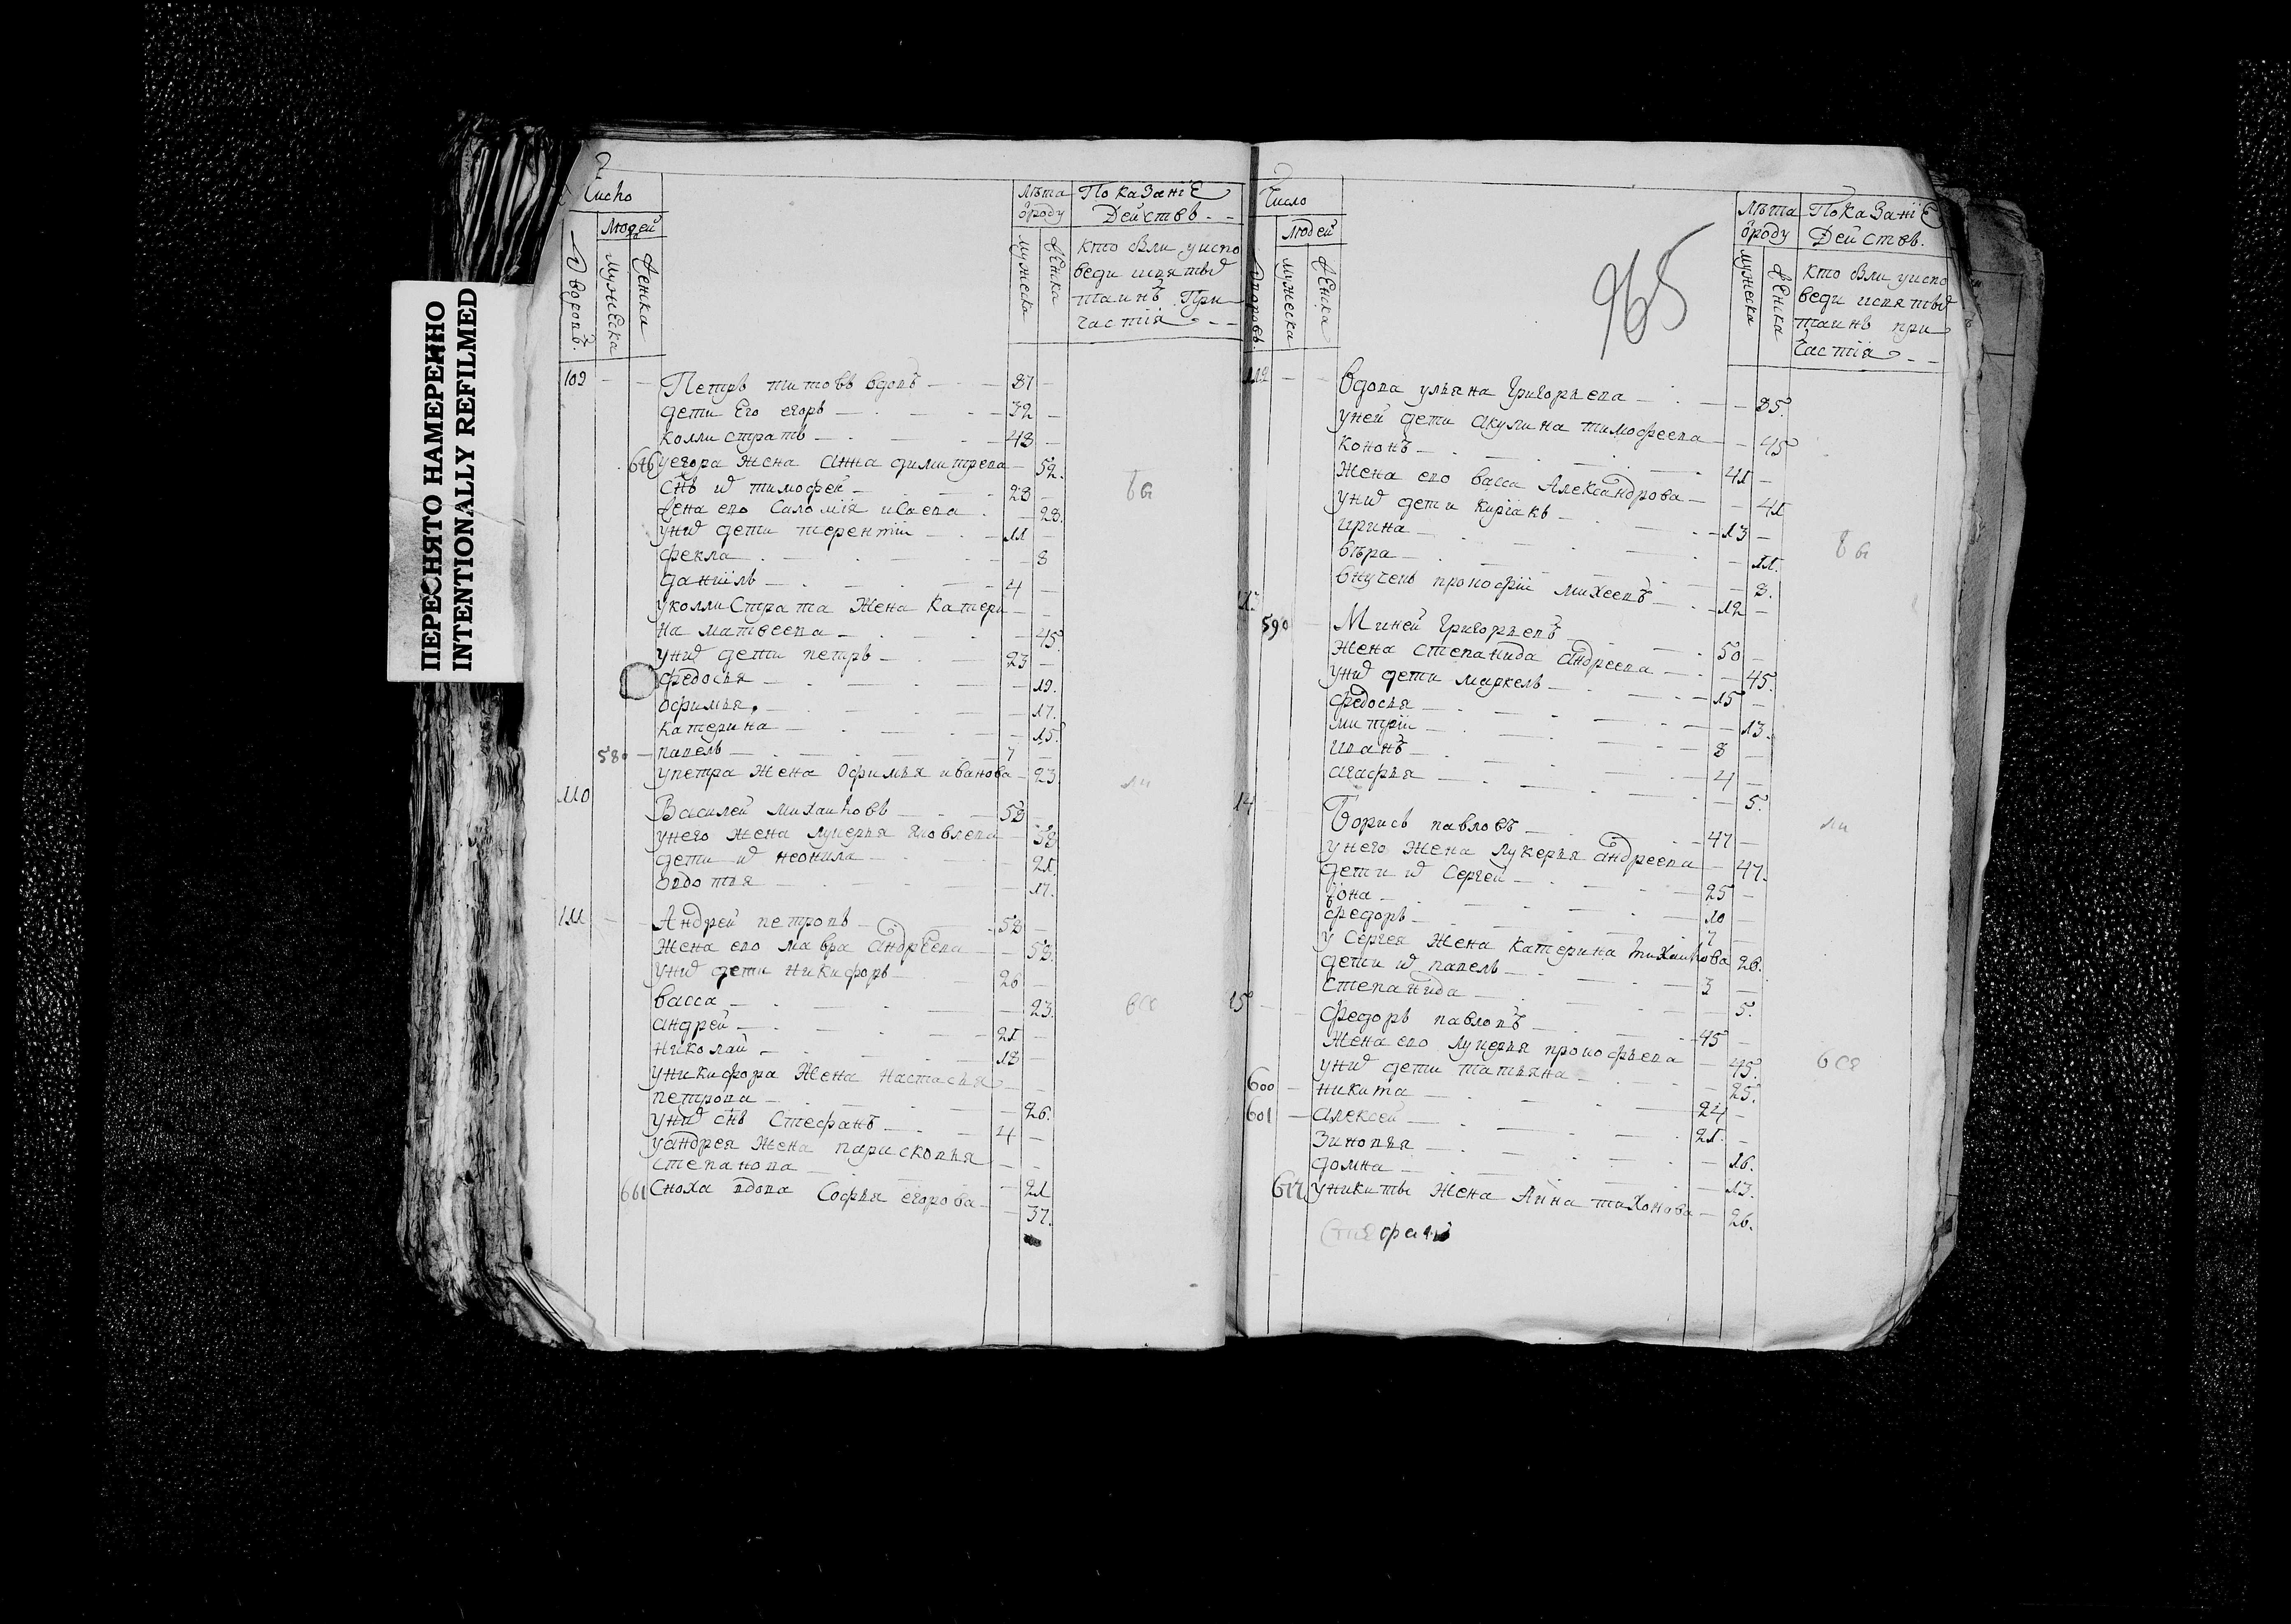 ПЕРЕСНЯТО НАМЕРЕННО
INTENTIONALLY REFILMED
Число
Людей
Дворовъ.
мужеска
Женска
Лѣта
ѿроду
мужеска
Женска
Показанїе
Действ - -
кто бѣли уиспо
веди исвятыѿ
таинъ При
частїя - -
109 Петръ титовъ вдовъ 87
дети Его егоръ 32
коллистратъ 48
646 уегора жена Анна димитрева 52.
снъ и тимофей 28
Жена его Саломїя исаева 28.
униѿ дети терентїи 11
фекла 8
данїилъ 4
уколлистрата Жена Катери
на матвеева 45
униѿ дети петръ 23
федосья 19.
офимья 17.
катерина 15.
580 павелъ 7
упетра жена Офимья иванова 23
110 Василей михаиловъ 58
унего жена лукерья яковлева 58
дети иѿ неонила 21.
овдотья 17.
111 Андрей петровъ 58
Жена его мавра андреева 58.
униѿ дети никифоръ 26
васса 23.
андрей 21
николай 18
уникифора Жена настасья
петрова 26.
униѿ снъ Стефанъ 4
уандрея жена парасковья
степанова 21
661 Сноха вдова Софья егорова 37.
вы
ли
вся
965
Число
Людей
Дворовъ.
мужеска
Женска
Лѣта
ѿроду
мужеска
Женска
Показанїе
Действ.
кто бѣли уиспо
веди исвятыѿ
таинъ при
частїя - -
112 Вдова ульяна Григорьева 85.
уней дети акулина тимофеева 45
кононъ 41
Жена его васса Александрова 41
униѿ дети кирїакъ 13
ирина 11.
вѣра 8.
внучекъ прокофїи михеевъ 12
13
590 Миней Григорьевъ 50
Жена степанида андреева 45.
униѿ дети маркелъ 15
федосья 13.
митрїи 8
иванъ 4
агафья 5.
14 Борисъ павловъ 47
унего жена лукерья андреева 47.
дети иѿ Сергей 25
їона 10
федоръ 7
у Сергея жена катерина михаилова 26.
дети иѿ павелъ 3
степанида 5.
15 Федоръ павловъ 45
Жена его лукерья прокофьева 45.
униѿ дети татьяна 25.
600 никита 24
601 алексей 21.
Зиновья 16.
домна 13.
677 уникиты Жена Анна тихонова 26.
вы
ли
вся